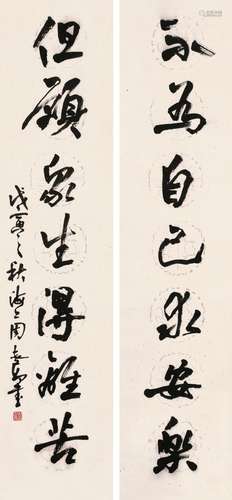 不为自己求安樂
但願众生得離苦
戊寅之秋海上周慧珺書